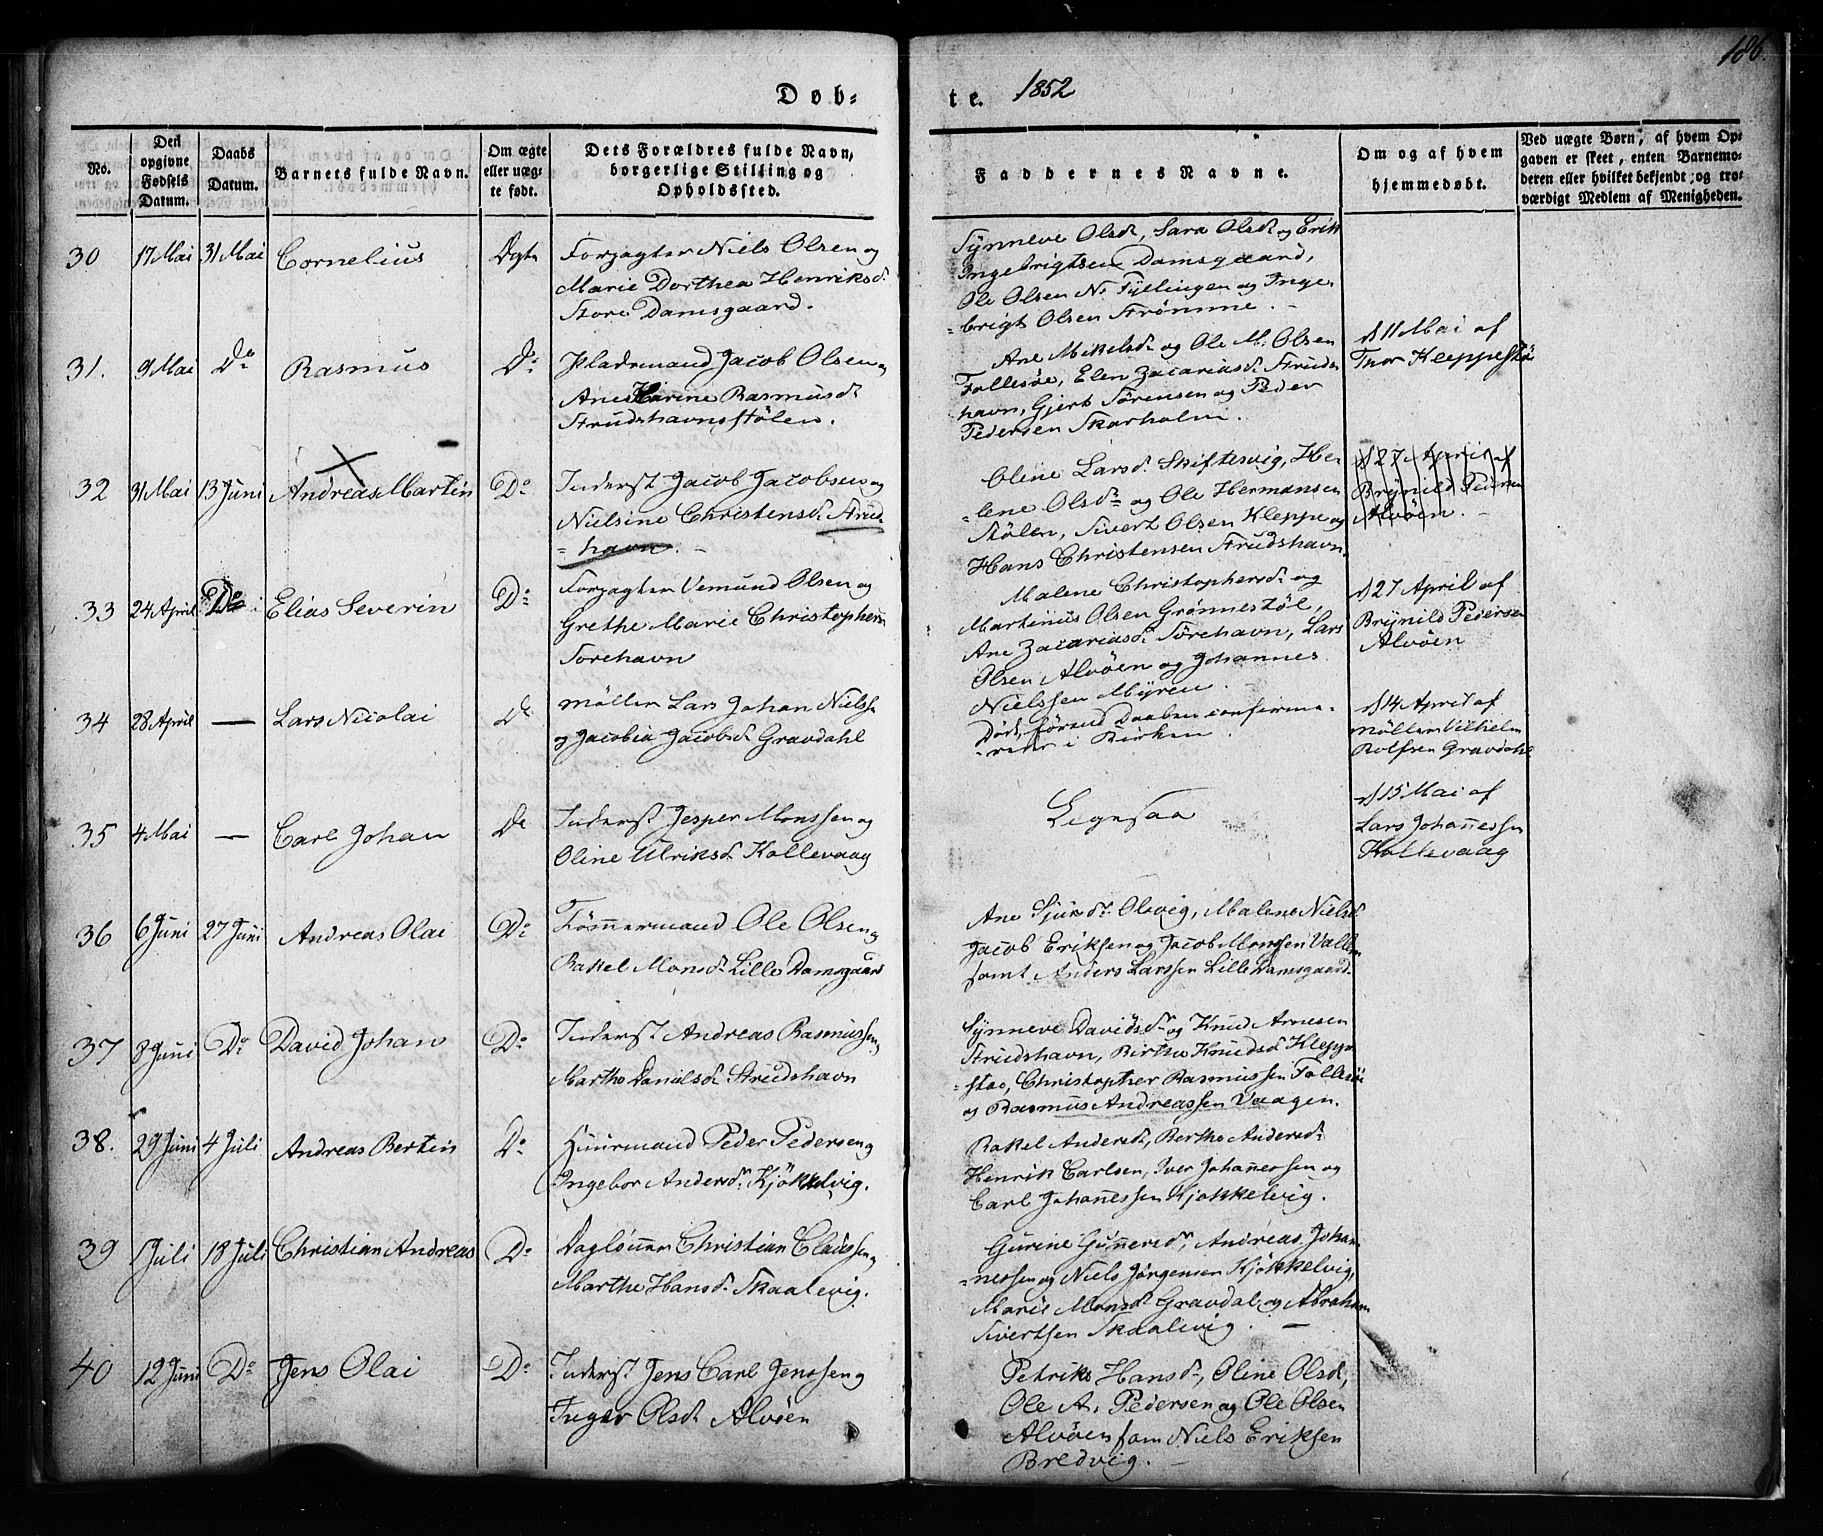 186.
Døb-
te. 1852
No.
Den opgivne Fødsels Datum.
Daabs Datum.
Barnets fulde Navn.
Om ægte eller uægte født.
Dets Forældres fulde Navn, borgerlige Stilling og Opholdssted.
Faddernes Navne.
Om og af hvem hjemmedøbt.
Ved uægte Børn, af hvem Opgaven er skeet, enten Barnemoderen eller hvilket bekjendt og troværdigt Medlem af Menigheden.
30 17 Mai 31 Mai Cornelius Ægte
Forpagter Niels Olsen og
Marie Dorthea Henriksd.
Store Damsgaard.
Synneve Olsd, Sara Olsd og Erik
Ingebrigtsen Damsgaard,
Ole Olsen N. Fyllingen og Inge-
-brigt Olsen Strømme. -
31. 9 Mai Do Rasmus Do
Pladsmand Jacob Olsen og
Ane Karine Rasmusd.
Strudshavnsstølen.
Ane Mikelsd og Ole M. Olsen
Follesøe, Elen Zacariasd. Struds-
havn, Gjert Sørensen og Peder
Pedersen Skarholm.
d 11 Mai af
Thor Kleppestø
32 31 Mai 13 Juni Andreas Martin Do
Inderst Jacob Jacobsen og
Nielsine Christensd. Strud-
-havn. -
Oline Larsd. Skiftesvig, He-
-lene Olsd. og Ole Hermansen
Stølen, Sivert Olsen Kleppe og
Hans Christensen Strudshavn.
d 27 April af
Brynild Pedersen
Alvøen. -
33 24 April Do Elias Severin Do
Forpagter Vemund Olsen og
Grethe Marie Christophersd
Sørehavn
Malene Christophersd og
Martinus Olsen Grønnestøl,
Ane Zacariasd. Sørehavn, Lars
Olsen Alvøen og Johannes
Nielssen Myren.
d 27 April af
Brynild Pedersen
Alvøen
34 28 April — Lars Nicolai Do
Møller Lars Johan Nielss.
og Jacobia Jacobsd Gravdahl
Død, førend Daaben confirme-
-redes i Kirken.
d 14 April af
Møller Vilhelm
Rolfsen Gravdahl
35 4 Mai — Carl Johan Do
Inderst Jesper Monssen og
Oline Ulriksd Kollevaag
Ligesaa
d 15 Mai af
Lars Johannessen
Kollevaag
36 6 Juni 27 Juni Andreas Olai Do
Tømmermand Ole Olsen og
Rakel Monsd. Lille Damsgaard
Ane Sjursd. Olsvig, Malene Nielsd
Jacob Eriksen og Jacob Monssen Valle
samt Anders Larssen Lille Damsgaard.
37 8 Juni Do David Johan Do
Inderst Andreas Rasmussen og
Martha Danielsd Strudshavn
Synneve Davidsd. og Knud Arnesen
Strudshavn, Birthe Knudsd Kleppe-
-støe, Christopher Rasmussen Follesøe
og Rasmus Andreassen Vaagen.
38. 29 Juni 4 Juli Andreas Bertin Do
Huusmand Peder Pedersen og
Ingebor Andersd. Kjøkkelvig.
Rakel Andersd, Berthe Andersd.
Henrik Carlsen, Iver Johannessen og
Carl Johannessen Kjøkkelvig.
39 1 Juli 18 Juli Christian Andreas Do
Dagløner Christian Claussen og
Marthe Hansd. Skaalevig.
Gurine Gunnersd, Andreas Johan-
-nessen og Niels Jørgensen Kjøkkelvig,
Marie Monsd Gravdal, og Abraham
Sivertsen Skaalevig. -
40 12 Juni Do Jens Olai Do
Inderst Jens Carl Jenssen og
Inger Olsd Alvøen
Petrike Hansd., Oline Olsd,
Ole A. Pedersen og Ole Olsen
Alvøen sam Niels Eriksen
Bredvig. -